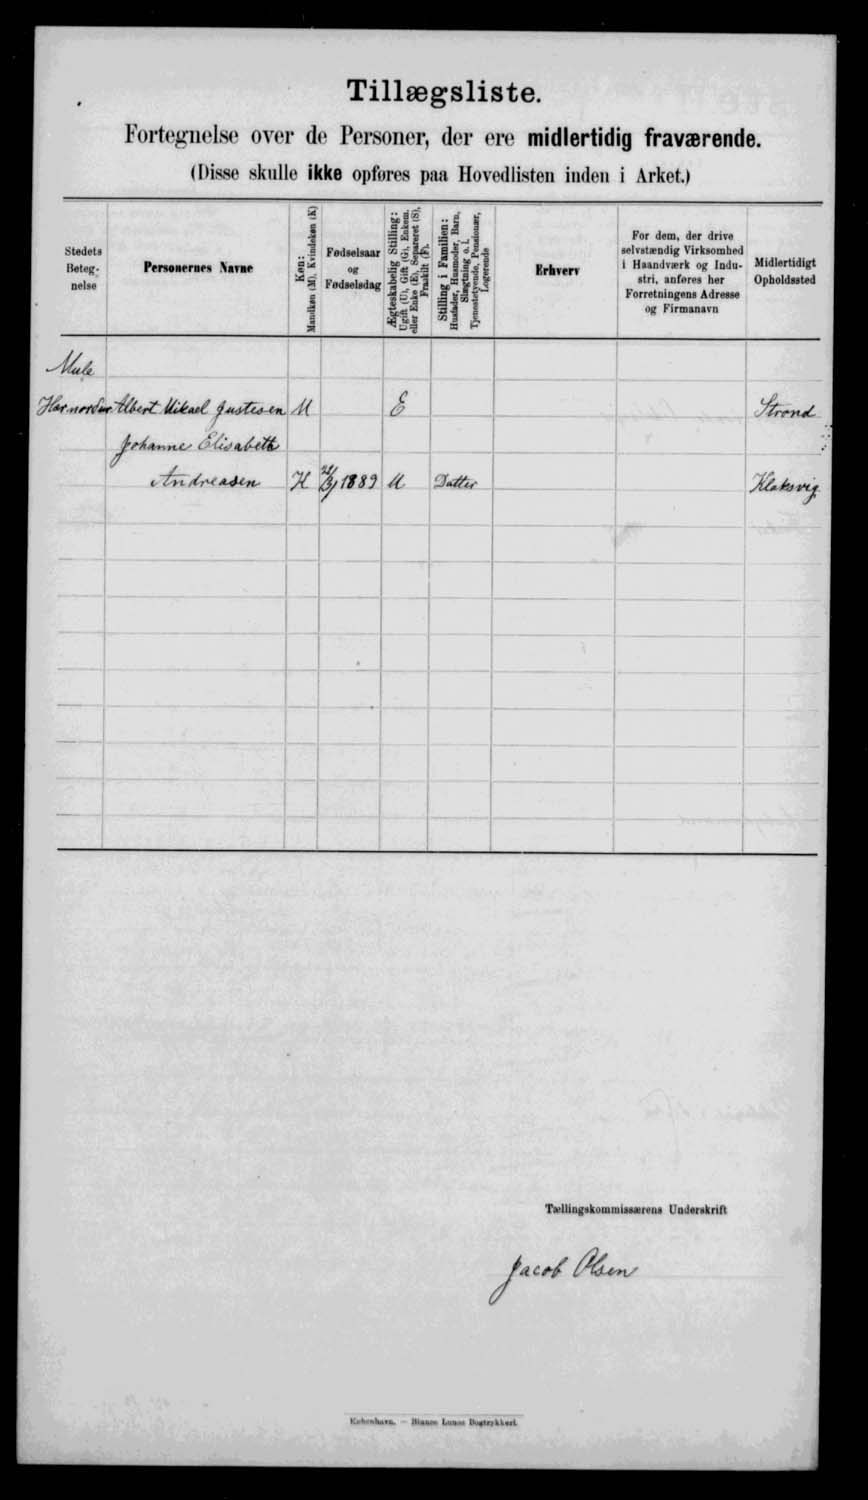 Tillægsliste.
Fortegnelse over de Personer, der ere midlertidig fraværende.
(Disse skulle ikke opføres paa Hovedlisten inden i Arket.)
Stedets
Beteg-
nelse
Personernes Navne
Køn:
Mandkøn (M), Kvindekøn (K)
Fødselsaar
og
Fødselsdag
Ægteskabelig Stilling:
Ugift (U), Gift (G), Enkem.
eller Enke (E), Separeret (S),
Fraskilt (F).
Stilling i Familien:
Husfader, Husmoder, Barn,
Slægtning o. l.
Tjenestetyende, Pensionær,
Logerende
Erhverv
For dem, der drive
selvstændig Virksomhed
i Haandværk og Indu-
stri, anføres her
Forretningens Adresse
og Firmanavn
Midlertidigt
Opholdssted
Mule
Har nordur Albert Mikael Justesen M E Strond
Johanne Elisabeth
Andreasen K 1889 U Datter Klaksvig
Tællingskommissærens Underskrift
Jacob Olsen
København. — Bianco Lunos Bogtrykkeri.